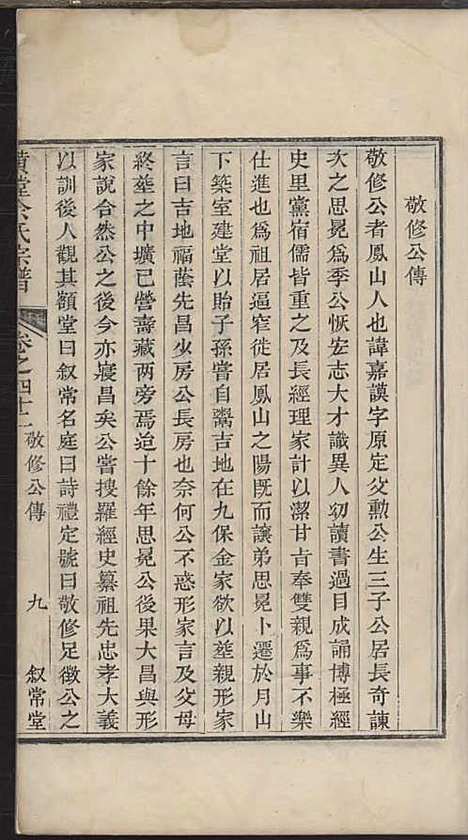 敬修公傳
敬修公者鳳山人也諱嘉謨字原定父勲公生三子公居長奇諫
次之思冕爲季公恢宏志大才識異人初讀書過目成誦博極經
史里黨宿儒皆重之及長經理家計以潔甘旨奉雙親爲事不樂
仕進也爲祖居逼窄徙居鳳山之陽既而讓弟思冕卜遷於月山
下築室建堂以貽子孫嘗自鬻吉地在九保金家欲以葬親形家
言曰吉地福蔭先昌少房公長房也奈何公不惑形家言及父母
終葬之中壙已營壽藏兩旁焉迨十餘年思冕公後果大昌與形
家說合然公之後今亦寢昌矣公嘗搜羅經史纂祖先忠孝大義
以訓後人觀其顏堂曰叙常名庭曰詩禮定號曰敬修足徵公之
黃堂余氏宗譜 卷之四十二 敬修公傳 九 叙常堂